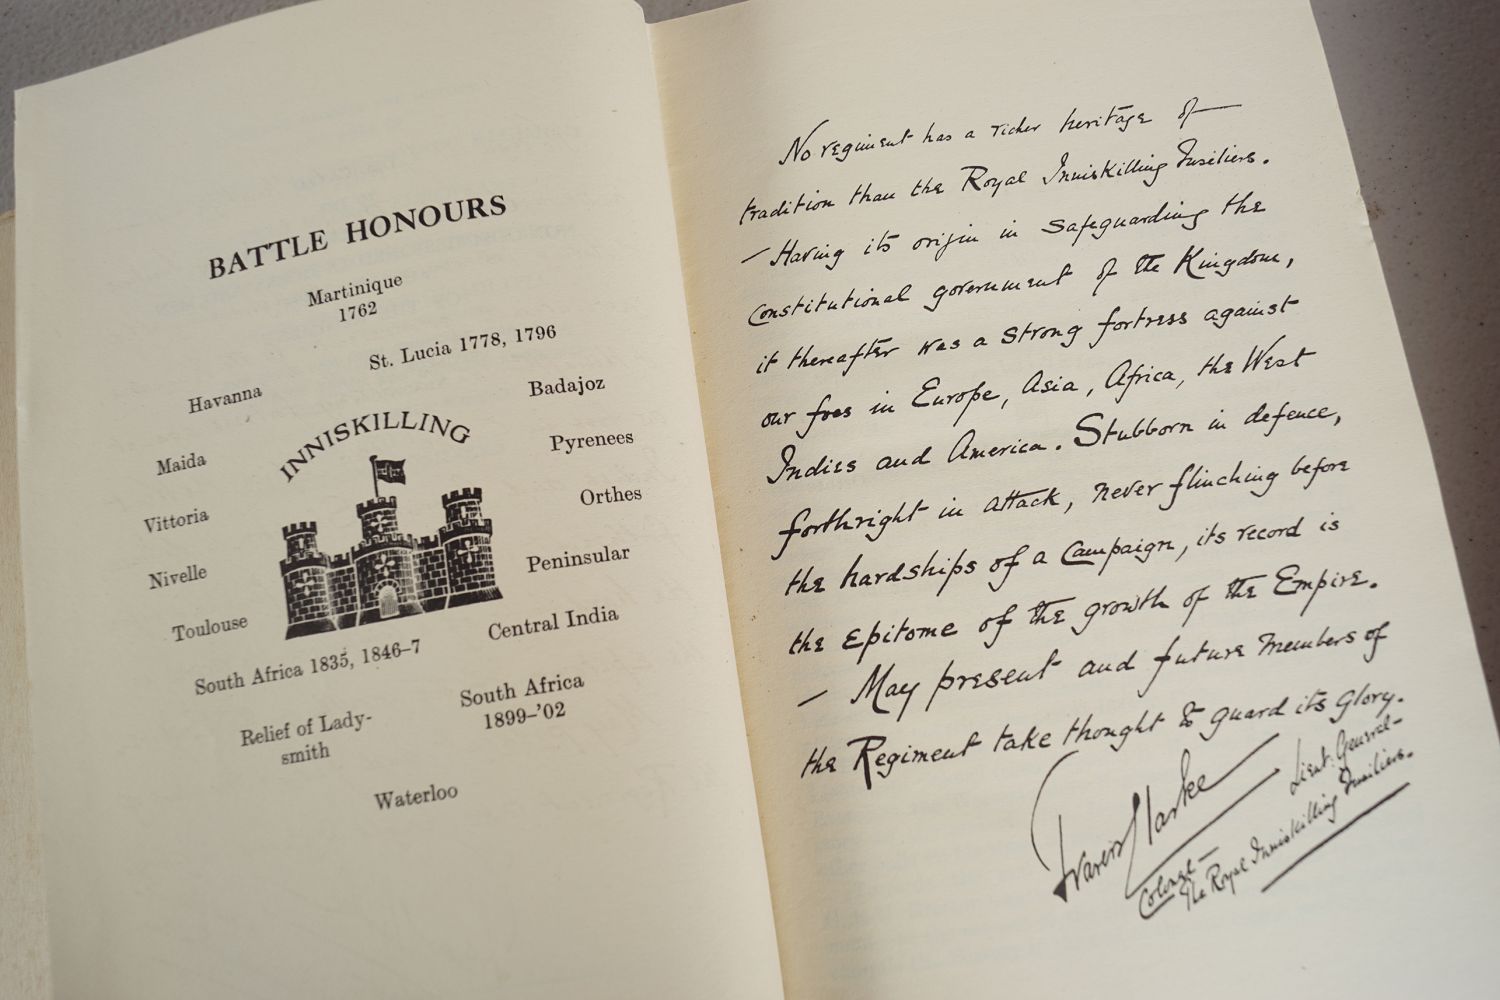 BATTLE HONOURS
Martinique
1762
St. Lucia 1778, 1796
Havanna
Badajoz
INNISKILLING
Maida
Pyrenees
Vittoria
Orthes
Nivelle
Peninsular
Toulouse
Central India
South Africa 1835, 1846–7
South Africa
1899–'02
Relief of Lady-
smith
Waterloo
No regiment has a richer heritage of
tradition than the Royal Inniskilling Fusiliers.
– Having its origin in safeguarding the
constitutional government of the Kingdom,
it thereafter was a strong fortress against
our foes in Europe, Asia, Africa, the West
Indies and America. Stubborn in defence,
forthright in attack, never flinching before
the hardships of a campaign, its record is
the epitome of the growth of the Empire.
– May present and future members of
the Regiment take thought to guard its glory.
Travers Clarke
Lieut: General–
Colonel–
The Royal Inniskilling Fusiliers.